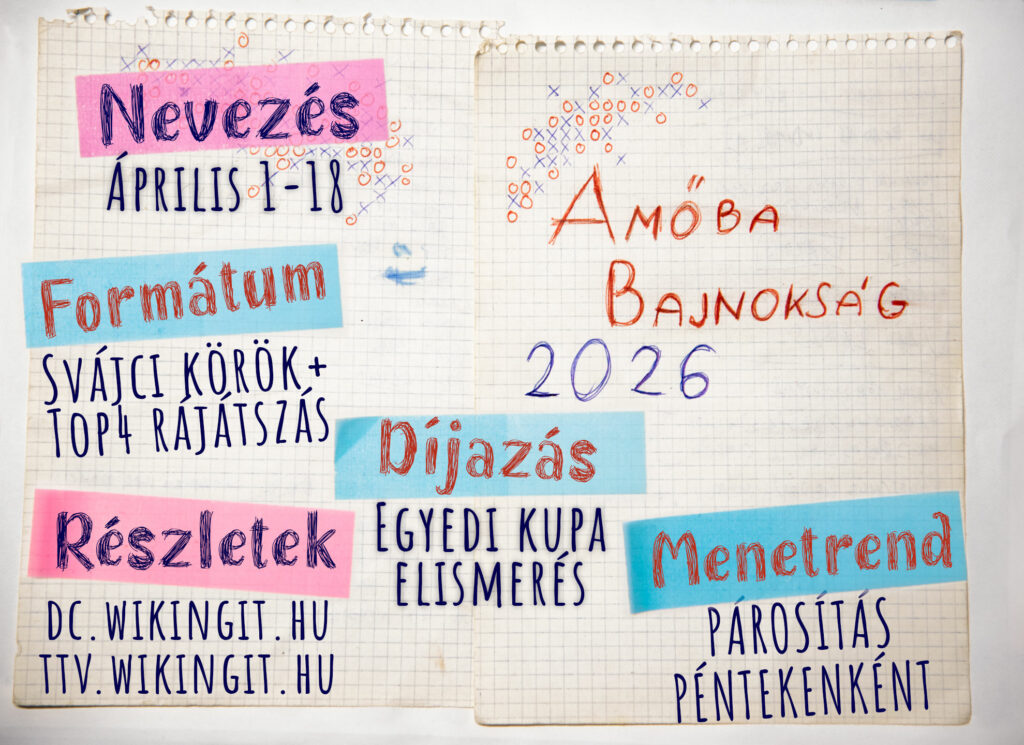 Nevezés
Április 1-18
Formátum
Svájci körök+
Top4 rájátszás
Részletek
dc.wikingit.hu
ttv.wikingit.hu
Amőba
Bajnokság
2026
Díjazás
Egyedi kupa
elismerés
Menetrend
párosítás
péntekenként